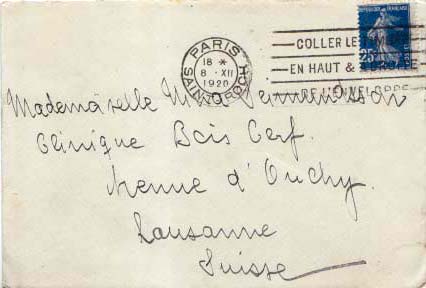 PARIS
18 *
8 · XII
1920
SAINT ROCH
COLLER LE
25
EN HAUT &
DE L'ENVELOPPE
Mademoiselle
Clinique Bois Cerf.
Avenue d'Ouchy.
Lausanne
Suisse